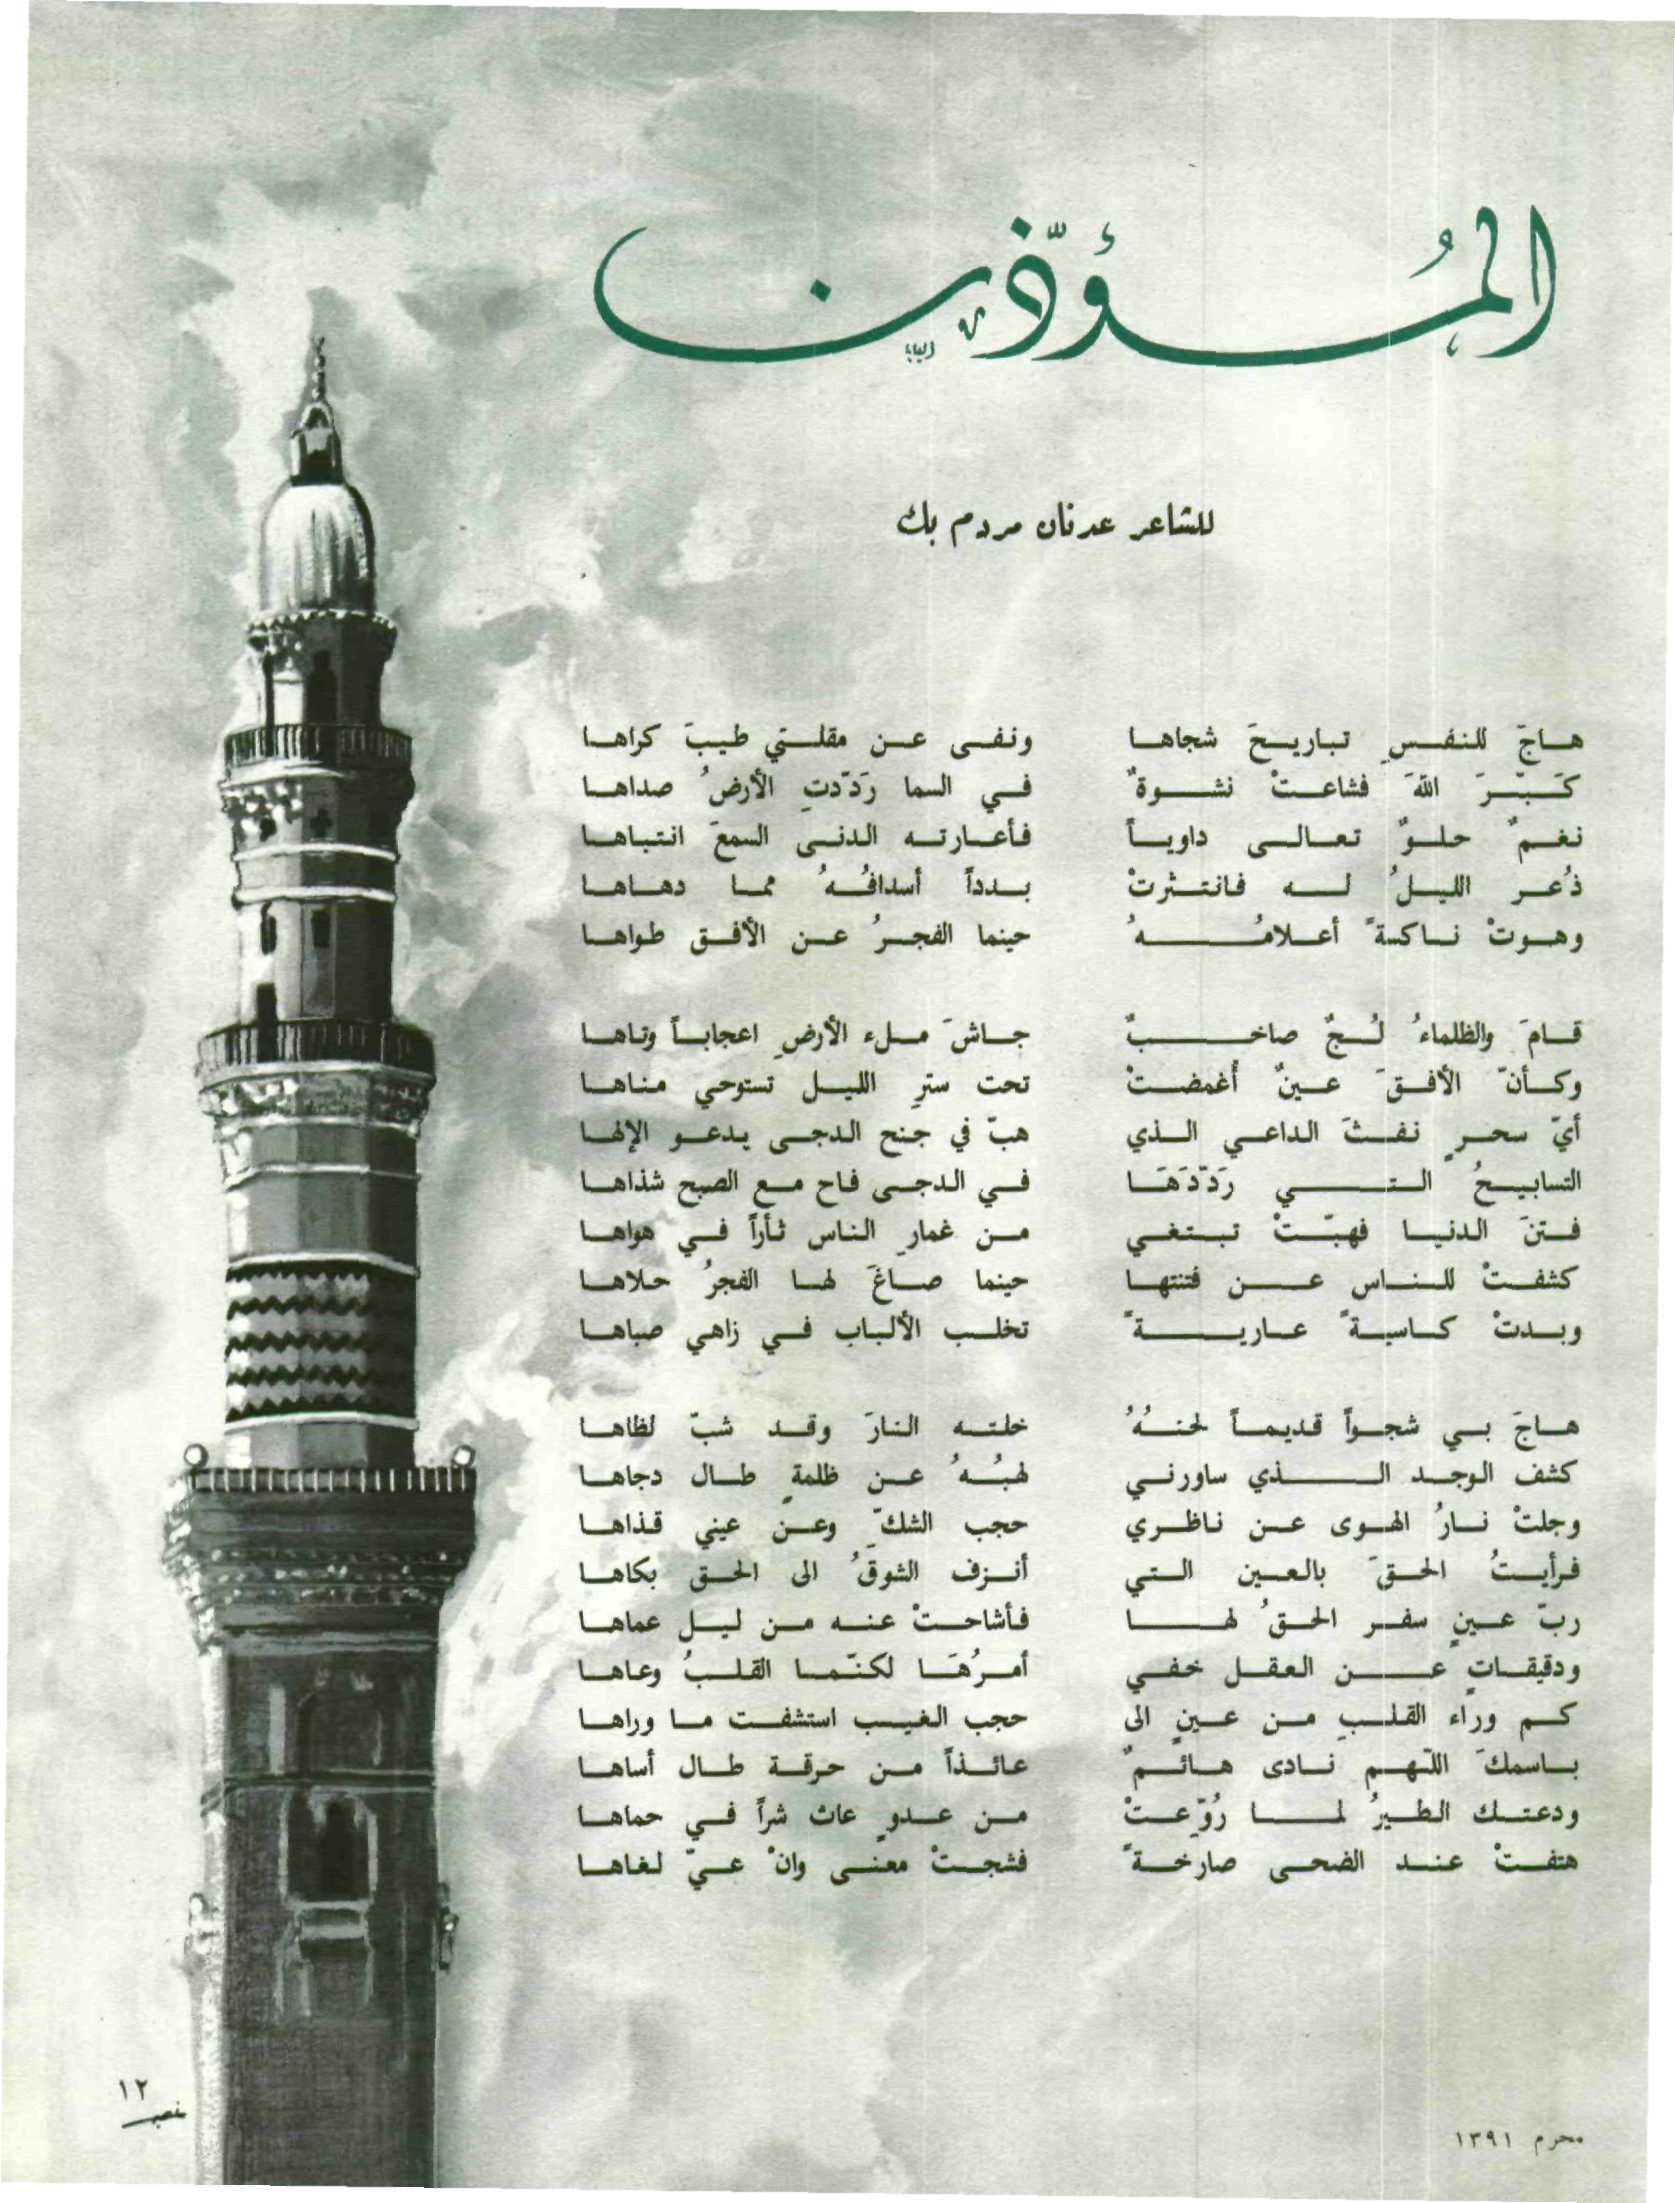 المُؤذّن
للشاعر عدنان مردم بك
هاجَ للنفسِ تباريحَ شجاها ونفى عن مقلتي طيبَ كراها
كَبّرَ اللهَ فشاعتْ نشوةٌ في السما رَدّدتِ الأرضُ صداها
نغمٌ حلوٌ تعالى داوياً فأعارته الدنى السمعَ انتباها
ذُعر الليلُ له فانتثرتْ بدداً أسدافُهُ مما دهاها
وهوتْ ناكسةً أعلامُهُ حينما الفجرُ عن الأفق طواها
قامَ والظلماءُ لُجٌ صاخبٌ جاشَ ملء الأرضِ اعجاباً وتاها
وكأنّ الأفقَ عينٌ أُغمضتْ تحت سترِ الليل تستوحي مناها
أيّ سحرٍ نفثَ الداعي الذي هبّ في جنح الدجى يدعو الإلها
التسابيحُ التي رَدّدَهَا في الدجى فاح مع الصبح شذاها
فتنَ الدنيا فهبّتْ تبتغي من غمارِ الناس ثأراً في هواها
كشفتْ للناس عن فتنتها حينما صاغَ لها الفجرُ حلاها
وبدتْ كاسيةً عاريةً تخلب الألباب في زاهي صباها
هاجَ بي شجواً قديماً لحنُهُ خلته النارَ وقد شبّ لظاها
كشف الوجد الذي ساورني لهبُهُ عن ظلمةٍ طال دجاها
وجلتْ نارُ الهوى عن ناظري حجب الشكّ وعن عيني قذاها
فرأيتُ الحقَ بالعين التي أنزف الشوقُ الى الحق بكاها
ربّ عينٍ سفر الحقُ لها فأشاحتْ عنه من ليل عماها
ودقيقاتٍ عن العقل خفي أمرُهَا لكنّما القلبُ وعاها
كم وراء القلبِ من عينٍ الى حجب الغيب استشفت ما وراها
باسمكَ اللّهم نادى هائمٌ عائذاً من حرقة طال أساها
ودعتك الطيرُ لما رُوّعتْ من عدوٍ عاث شراً في حماها
هتفتْ عند الضحى صارخةً فشجتْ معنى وانْ عيّ لغاها
١٢
محرم ١٣٩١